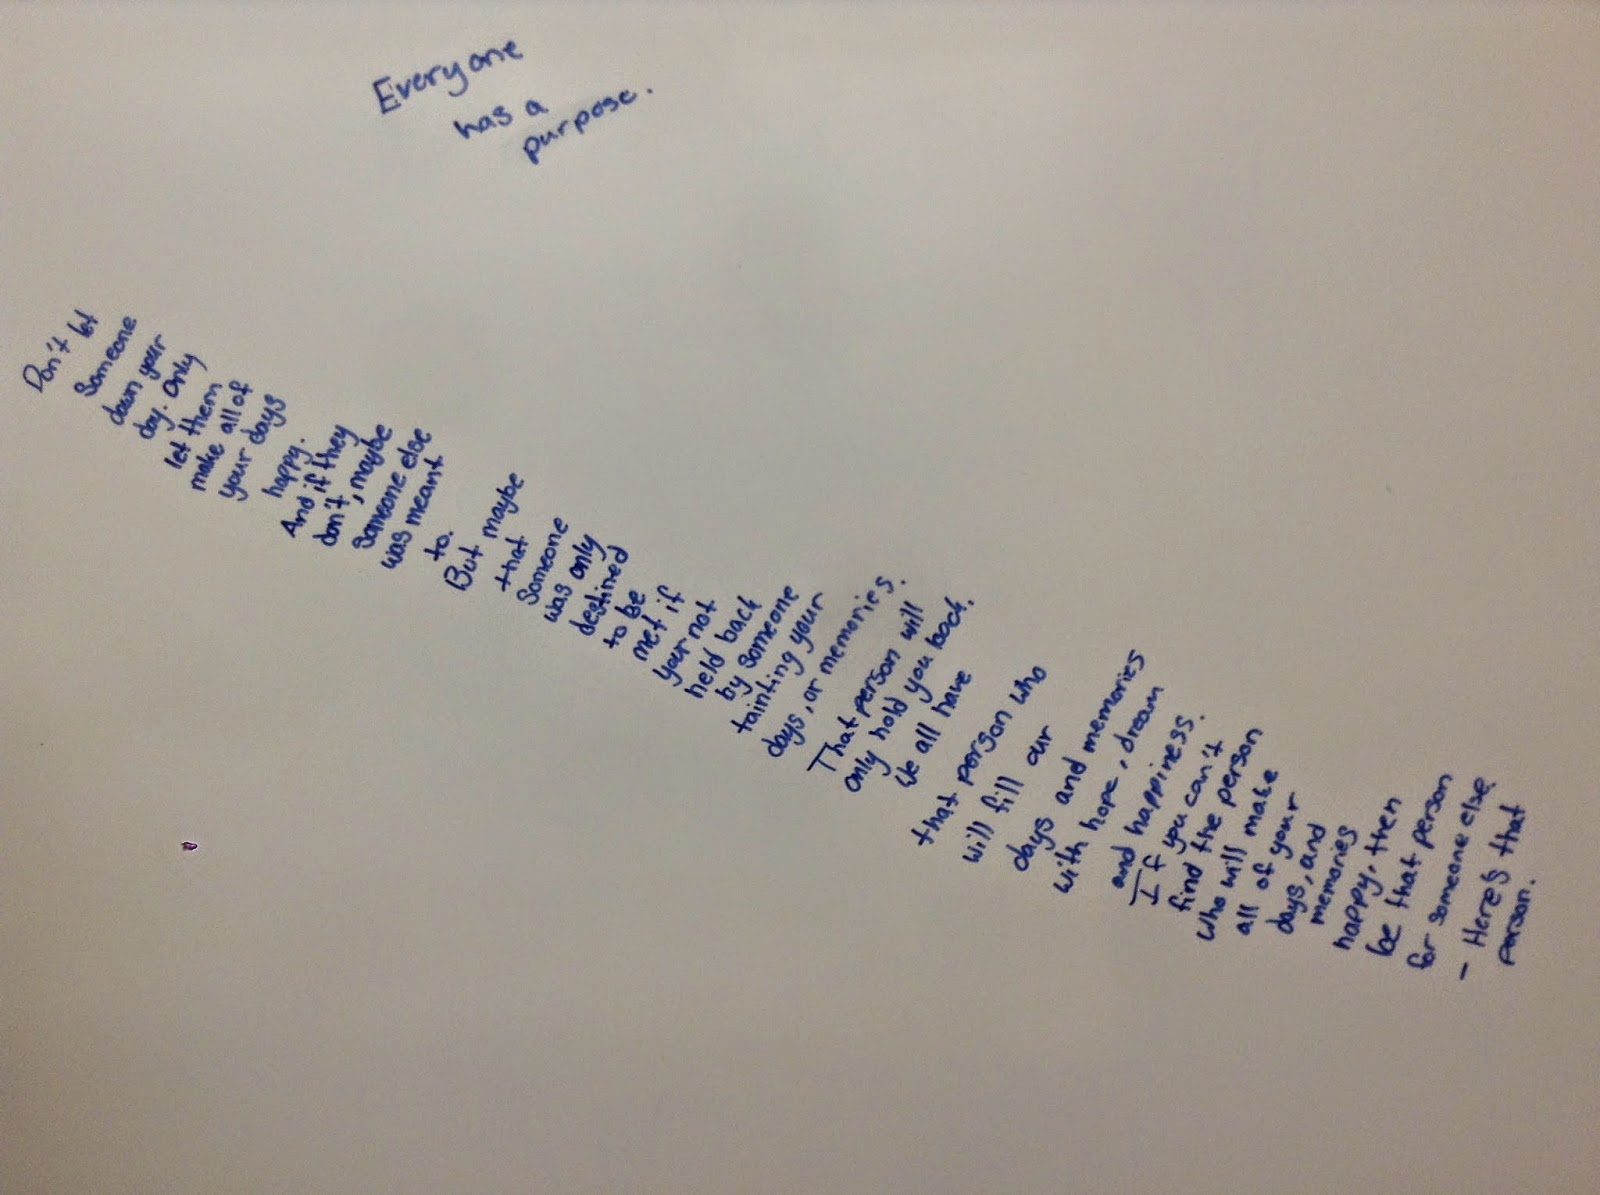 Everyone
has a
purpose.
Don't let
Someone
down your
day. Only
let them
make all of
your days
happy.
And if they
don't, maybe
someone else
was meant
to.
But maybe
that
someone
was only
destined
to be
met if
your not
held back
by someone
tainting your
days, or memories.
That person will
only hold you back.
We all have
that person who
will fill our
days and memories
with hope, dream
and happiness.
If you can't
find the person
who will make
all of your
days, and
memories
happy, then
be that person
for someone else
- Here's that
person.